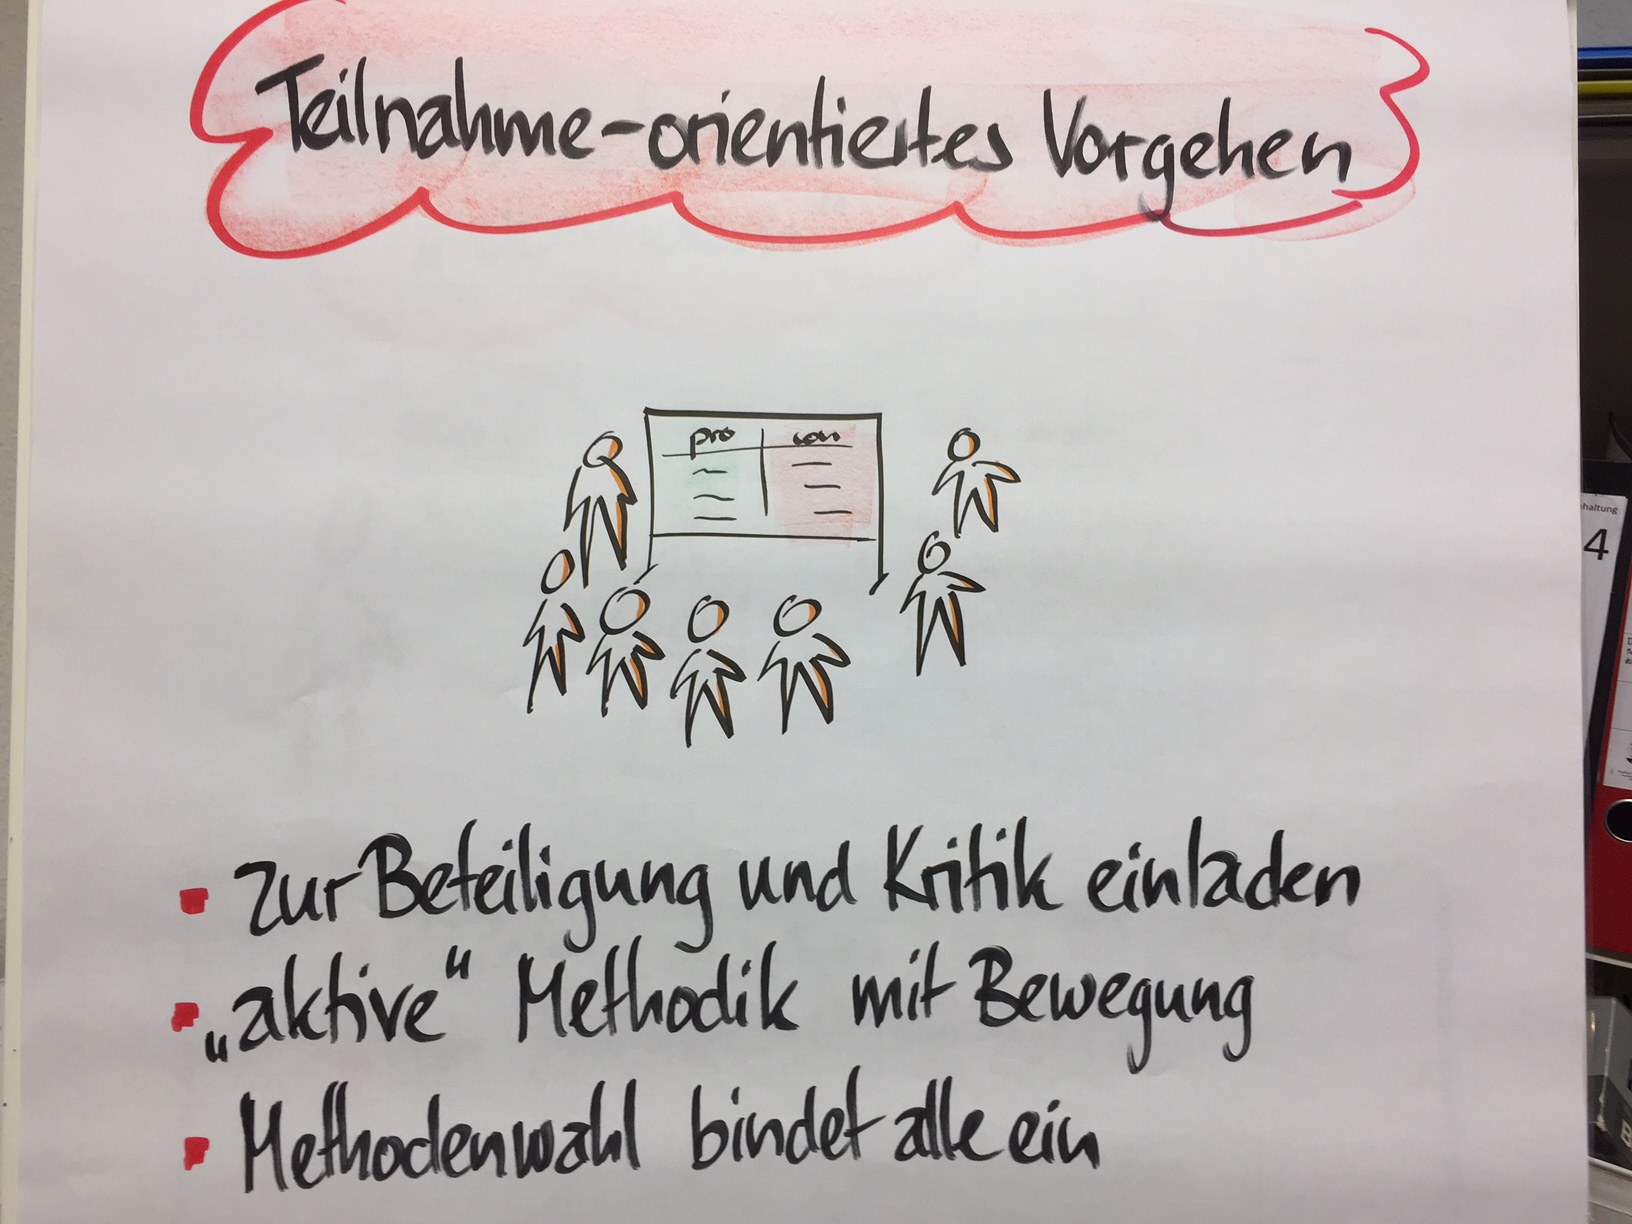 Teilnahme-orientiertes Vorgehen
pro con
haltung
4
▪ Zur Beteiligung und Kritik einladen
▪ „aktive“ Methodik mit Bewegung
▪ Methodenwahl bindet alle ein